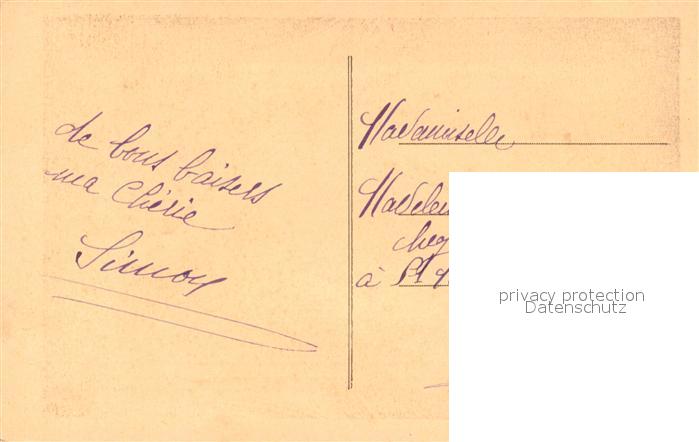 de bons baisers
ma Chérie
Simon
Mademoiselle
Madelei
à St
privacy protection
Datenschutz